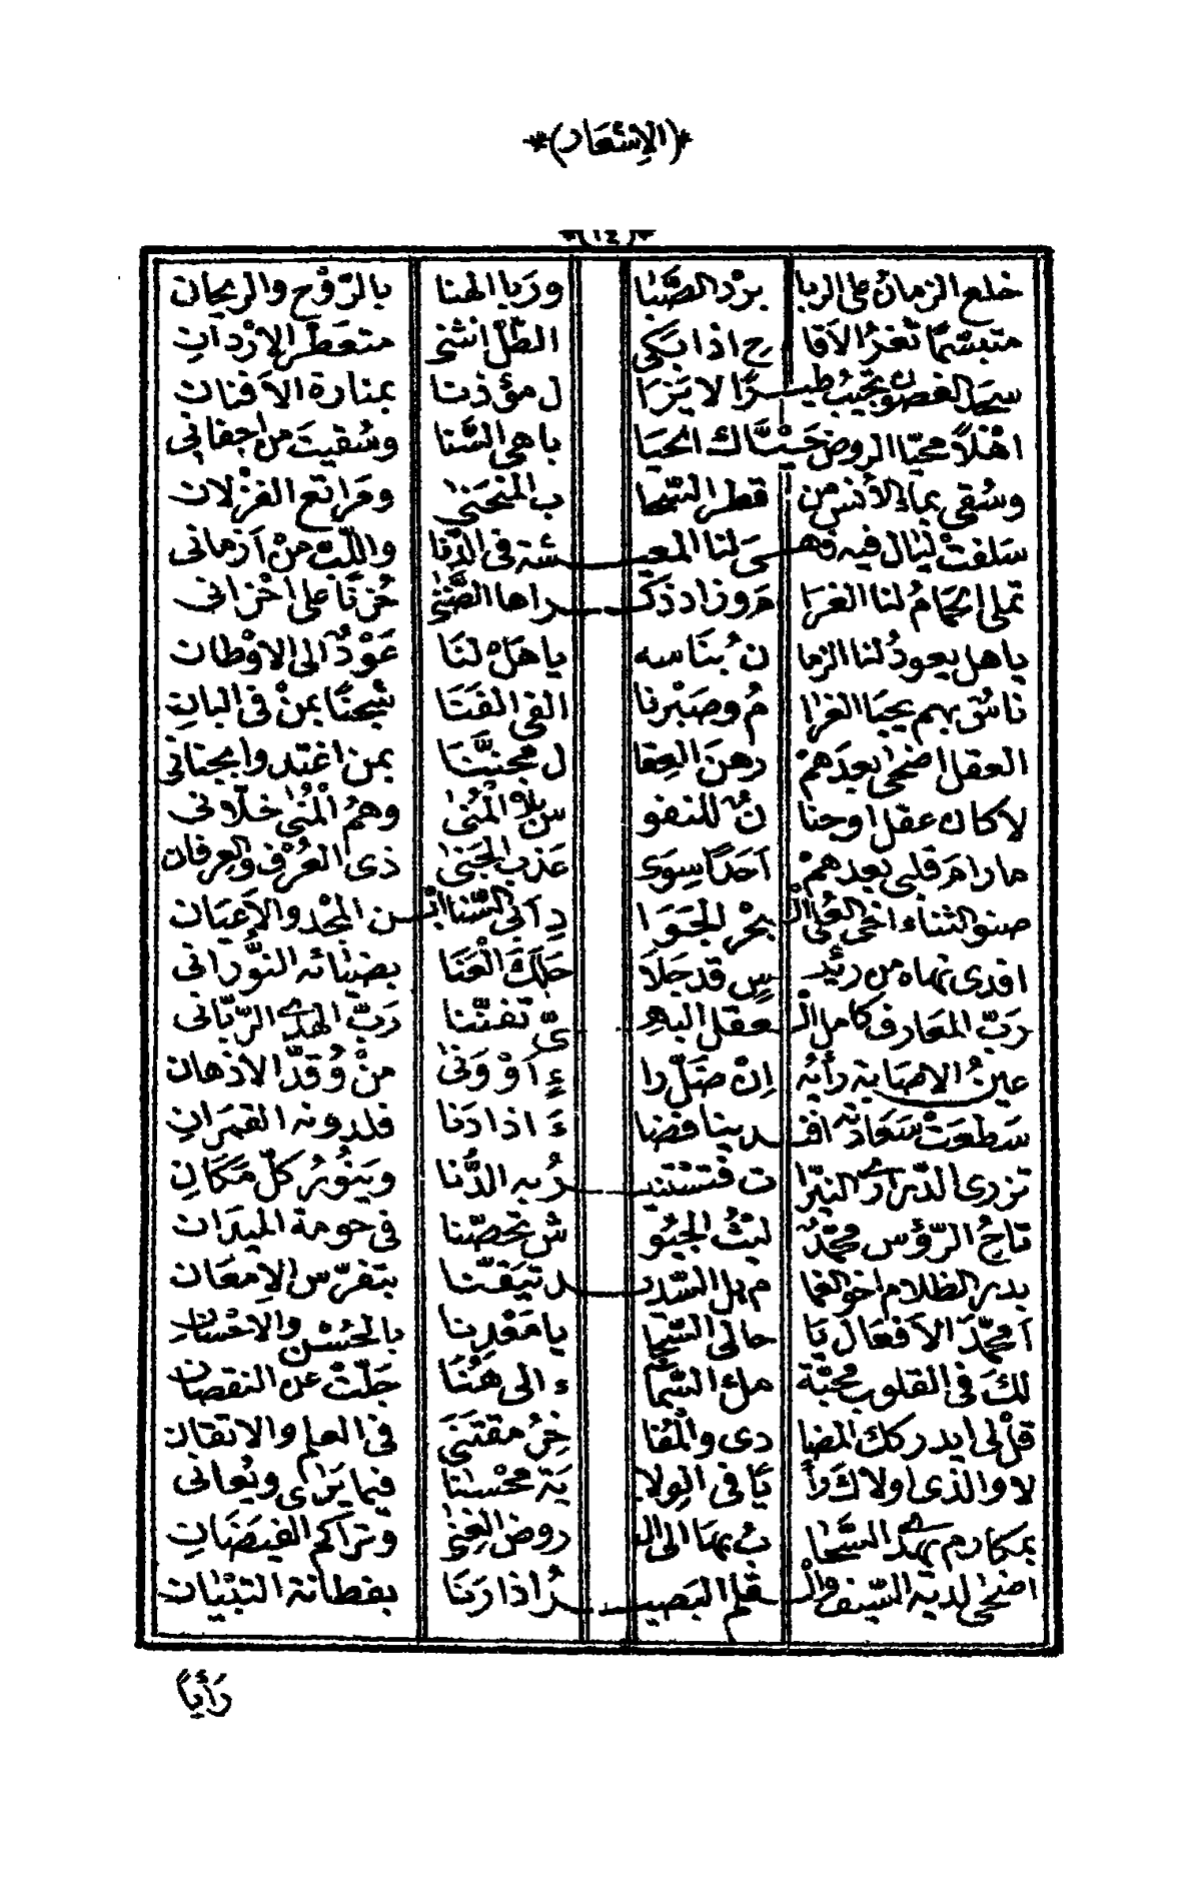 *(الاشعار)*
*(١٤)*
خلع الزمان على الربا برْد الصَّبَا ورَبا الهنا بالرّوْح والريحان
متبسّمًا ثغرُ الأقا ح اذا بكى الطّلّ انثنى متعطّر الاِرْدانِ
سحَر الغصون يجيبُ طيـرًا لا يزَا ل مؤذنا بمنارة الأفنان
اهْلاً محيّا الروض حَيَّاك الحيَا باهى السَّنا وسُقيتَ من اجفانى
وسُقى بماء الأنس من قطر السّما ب المنحنىٰ ومَراتع الغزْلان
سَلفتْ ليال فيه وَهـى لنا المعـيشة فى الدّنا واللّت منْ اَزمانى
تملى الحمامُ لنا الغرَا مَ وزاد ذكـراها الضّنىٰ حُزنًا على احْزانى
يا هل يعودُ لنا الزما نُ بنَاسه يا هَلْ لنَا عَوْدٌ الى الاوْطان
ناسٌ بهم يحيَا الغرٰا مُ وصَبْرنا الفى الفَنَا شجنًا بمنْ فى البانِ
العقل اضحىٰ بعدَهمْ رهنَ العِقا ل مجنَّنَا بمن اغتدوا بجنانى
لا كان عقل او حنا نٌ للنفو س بلا المُنىٰ وهمُ الْمُنىٰ خلّانى
ما رامَ قلبى بعدهمْ اَحَدًا سوَى عَذبِ الجَنىٰ ذى العُرْف والعِرفان
صنو الثناء اخى العُلى الـ بحْر الجَوَا دِ آبى السّنا ابْـن المجْد والأعيَان
افدى نهاه من رئيـ سٍ قد جلاَ حلكَ الْعَنَا بضيَائه النّورانى
رَبّ المعارف كامل الْـ عقل البهِـ ىّ تفنّنا رَبّ الهدى الرّبّانى
عينُ الاصابة رأيُه اِنْ ضَلّ را ءٍ اَوْ وَنىٰ منْ وُقدَّ الاذهان
سَطعَتْ سَعَادته افقـ ـدينا فضا ءَ اذا دَنا فلدونه القمَرانِ
تزرى الدّرارى النيّرا ت فتسْتنيـ ـرُ به الدُّنا وينوُرُ كلّ مَكَانِ
تاجُ الرّؤس محمّدٌ ليْثُ الجيُو ش تحصّنا فى حومة الميدَان
بدر الظلام اخو الغما م بل السّديـ ـد تيَقنا بتفرّس الاِمعَان
اَمحمّدَ الأفعَال يَا حالى السّما يا مَعْدِنا بالحُسْن والاحْسَان
لكَ فى القلوب محبّة ملك السّمآ ء الى هُنَا جَلّتْ عن النقصان
قلْ لى ايدرككَ المضا دى والمُفا خِرُ مقتَنىَ فى العلم والاتقان
لا والذى اولاكَ رأ يًا فى الوِلا يَة محْسنَا فيما يَرٰى ويُعانى
بمكارم يهدى السَّحٰا بُ بهَا الى الـ روض الغِنىٰ وتراكم الفيضَانِ
اضحىٰ لديه السّيف والْـ قلم البَصيـ ـرُ اذا رَنَا بفطانة التبْيَان
رَأيًا